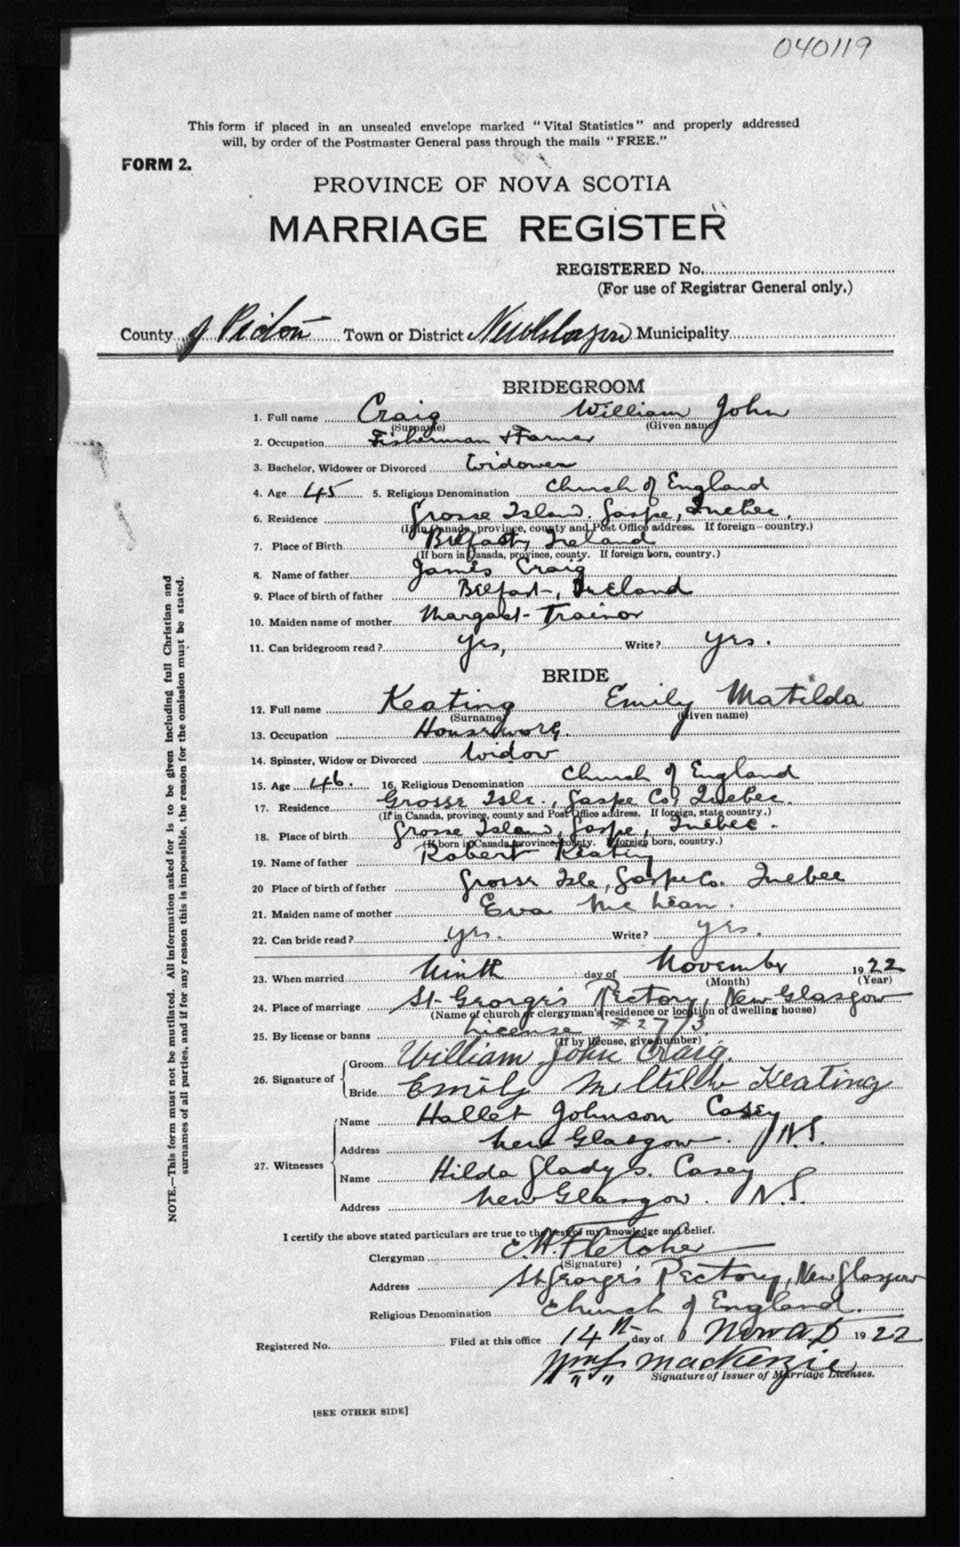 040119
This form if placed in an unsealed envelope marked "Vital Statistics" and properly addressed
will, by order of the Postmaster General pass through the mails "FREE."
FORM 2.
PROVINCE OF NOVA SCOTIA
MARRIAGE REGISTER
REGISTERED No.
(For use of Registrar General only.)
County of Pictou Town or District New Glasgow Municipality
BRIDEGROOM
1. Full name Craig William John
(Surname) (Given name)
2. Occupation Fisherman & Farmer
3. Bachelor, Widower or Divorced Widower
4. Age 45 5. Religious Denomination Church of England
6. Residence Grosse Island. Gaspe, Quebec.
(If in Canada, province, county and Post Office address. If foreign—country.)
7. Place of Birth Belfast, Ireland
(If born in Canada, province, county. If foreign born, country.)
8. Name of father James Craig
9. Place of birth of father Belfast, Ireland
10. Maiden name of mother Margaret Trainor
11. Can bridegroom read? Yes, Write? Yes.
BRIDE
12. Full name Keating Emily Matilda
(Surname) (Given name)
13. Occupation Housework.
14. Spinster, Widow or Divorced Widow
15. Age 46. 16. Religious Denomination Church of England
17. Residence Grosse Isle, Gaspe Co, Quebec.
(If in Canada, province, county and Post Office address. If foreign, state country.)
18. Place of birth Grosse Island, Gaspe, Quebec.
(If born in Canada, province, county. If foreign born, country.)
19. Name of father Robert Keating
20 Place of birth of father Grosse Isle, Gaspe Co. Quebec
21. Maiden name of mother Eva McLean.
22. Can bride read? yes. Write? yes.
23. When married Ninth day of November 1922
(Month) (Year)
24. Place of marriage St. George's Rectory, New Glasgow
(Name of church or clergyman's residence or location of dwelling house)
25. By license or banns License #2773
(If by license, give number)
26. Signature of Groom William John Craig.
Bride Emily Keating
27. Witnesses Name Hallet Johnson Casey
Address New Glasgow. N.S.
Name Hilda Gladys. Casey
Address New Glasgow. N.S.
I certify the above stated particulars are true to the best of my knowledge and belief.
Clergyman Fletcher
(Signature)
Address St. George's Rectory, New Glasgow
Religious Denomination Church of England.
Registered No. Filed at this office 14th day of 1922
MacKenzie
Signature of Issuer of Marriage Licenses.
[SEE OTHER SIDE]
NOTE.—This form must not be mutilated. All information asked for is to be given including full Christian and
surnames of all parties, and if for any reason this is impossible, the reason for the omission must be stated.